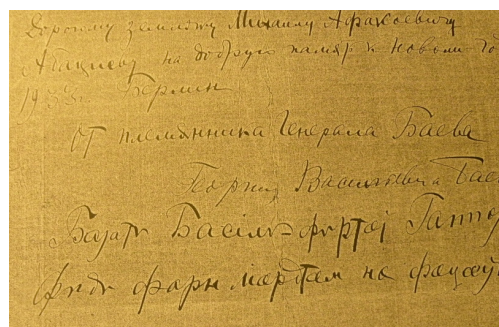 Дорогому земляку Михаилу Афакоевичу
Абациеву на добрую память к Новому го
193 г. Берлин
от племянника Генерала Баева
Георгия Васильевича Бае
Баjаты Басiлы-фурттаj Гаппо
фыды фарн мардтам на фацæу